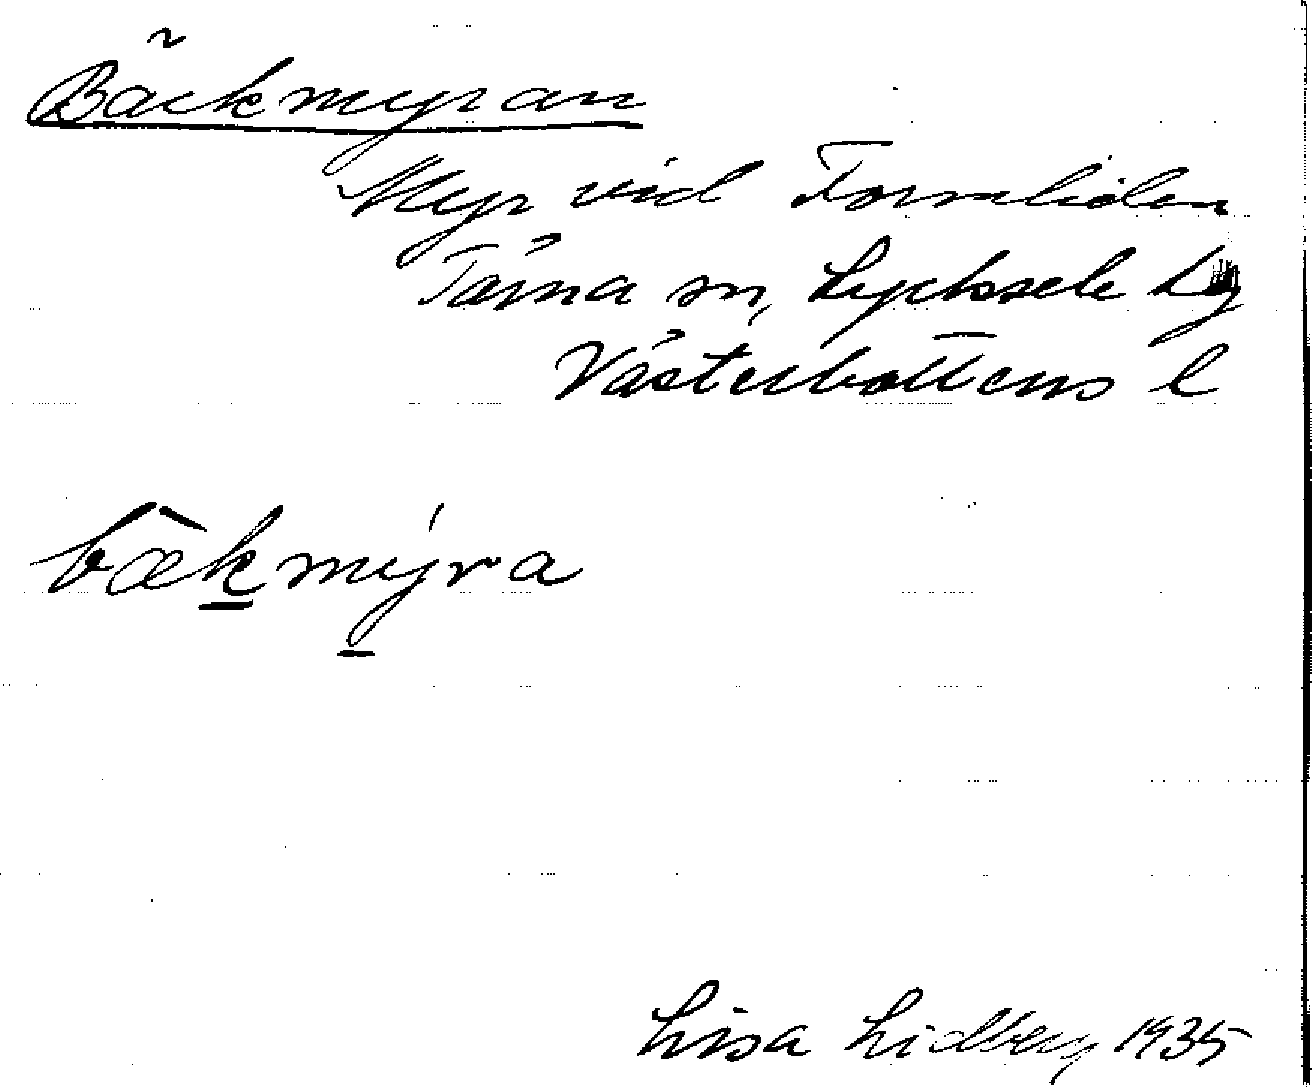 Bäckmyran
Myr vid Formliden
Tärna sn, Lycksele lg
Västerbottens l
bækmýra
Lisa Lidberg 1935